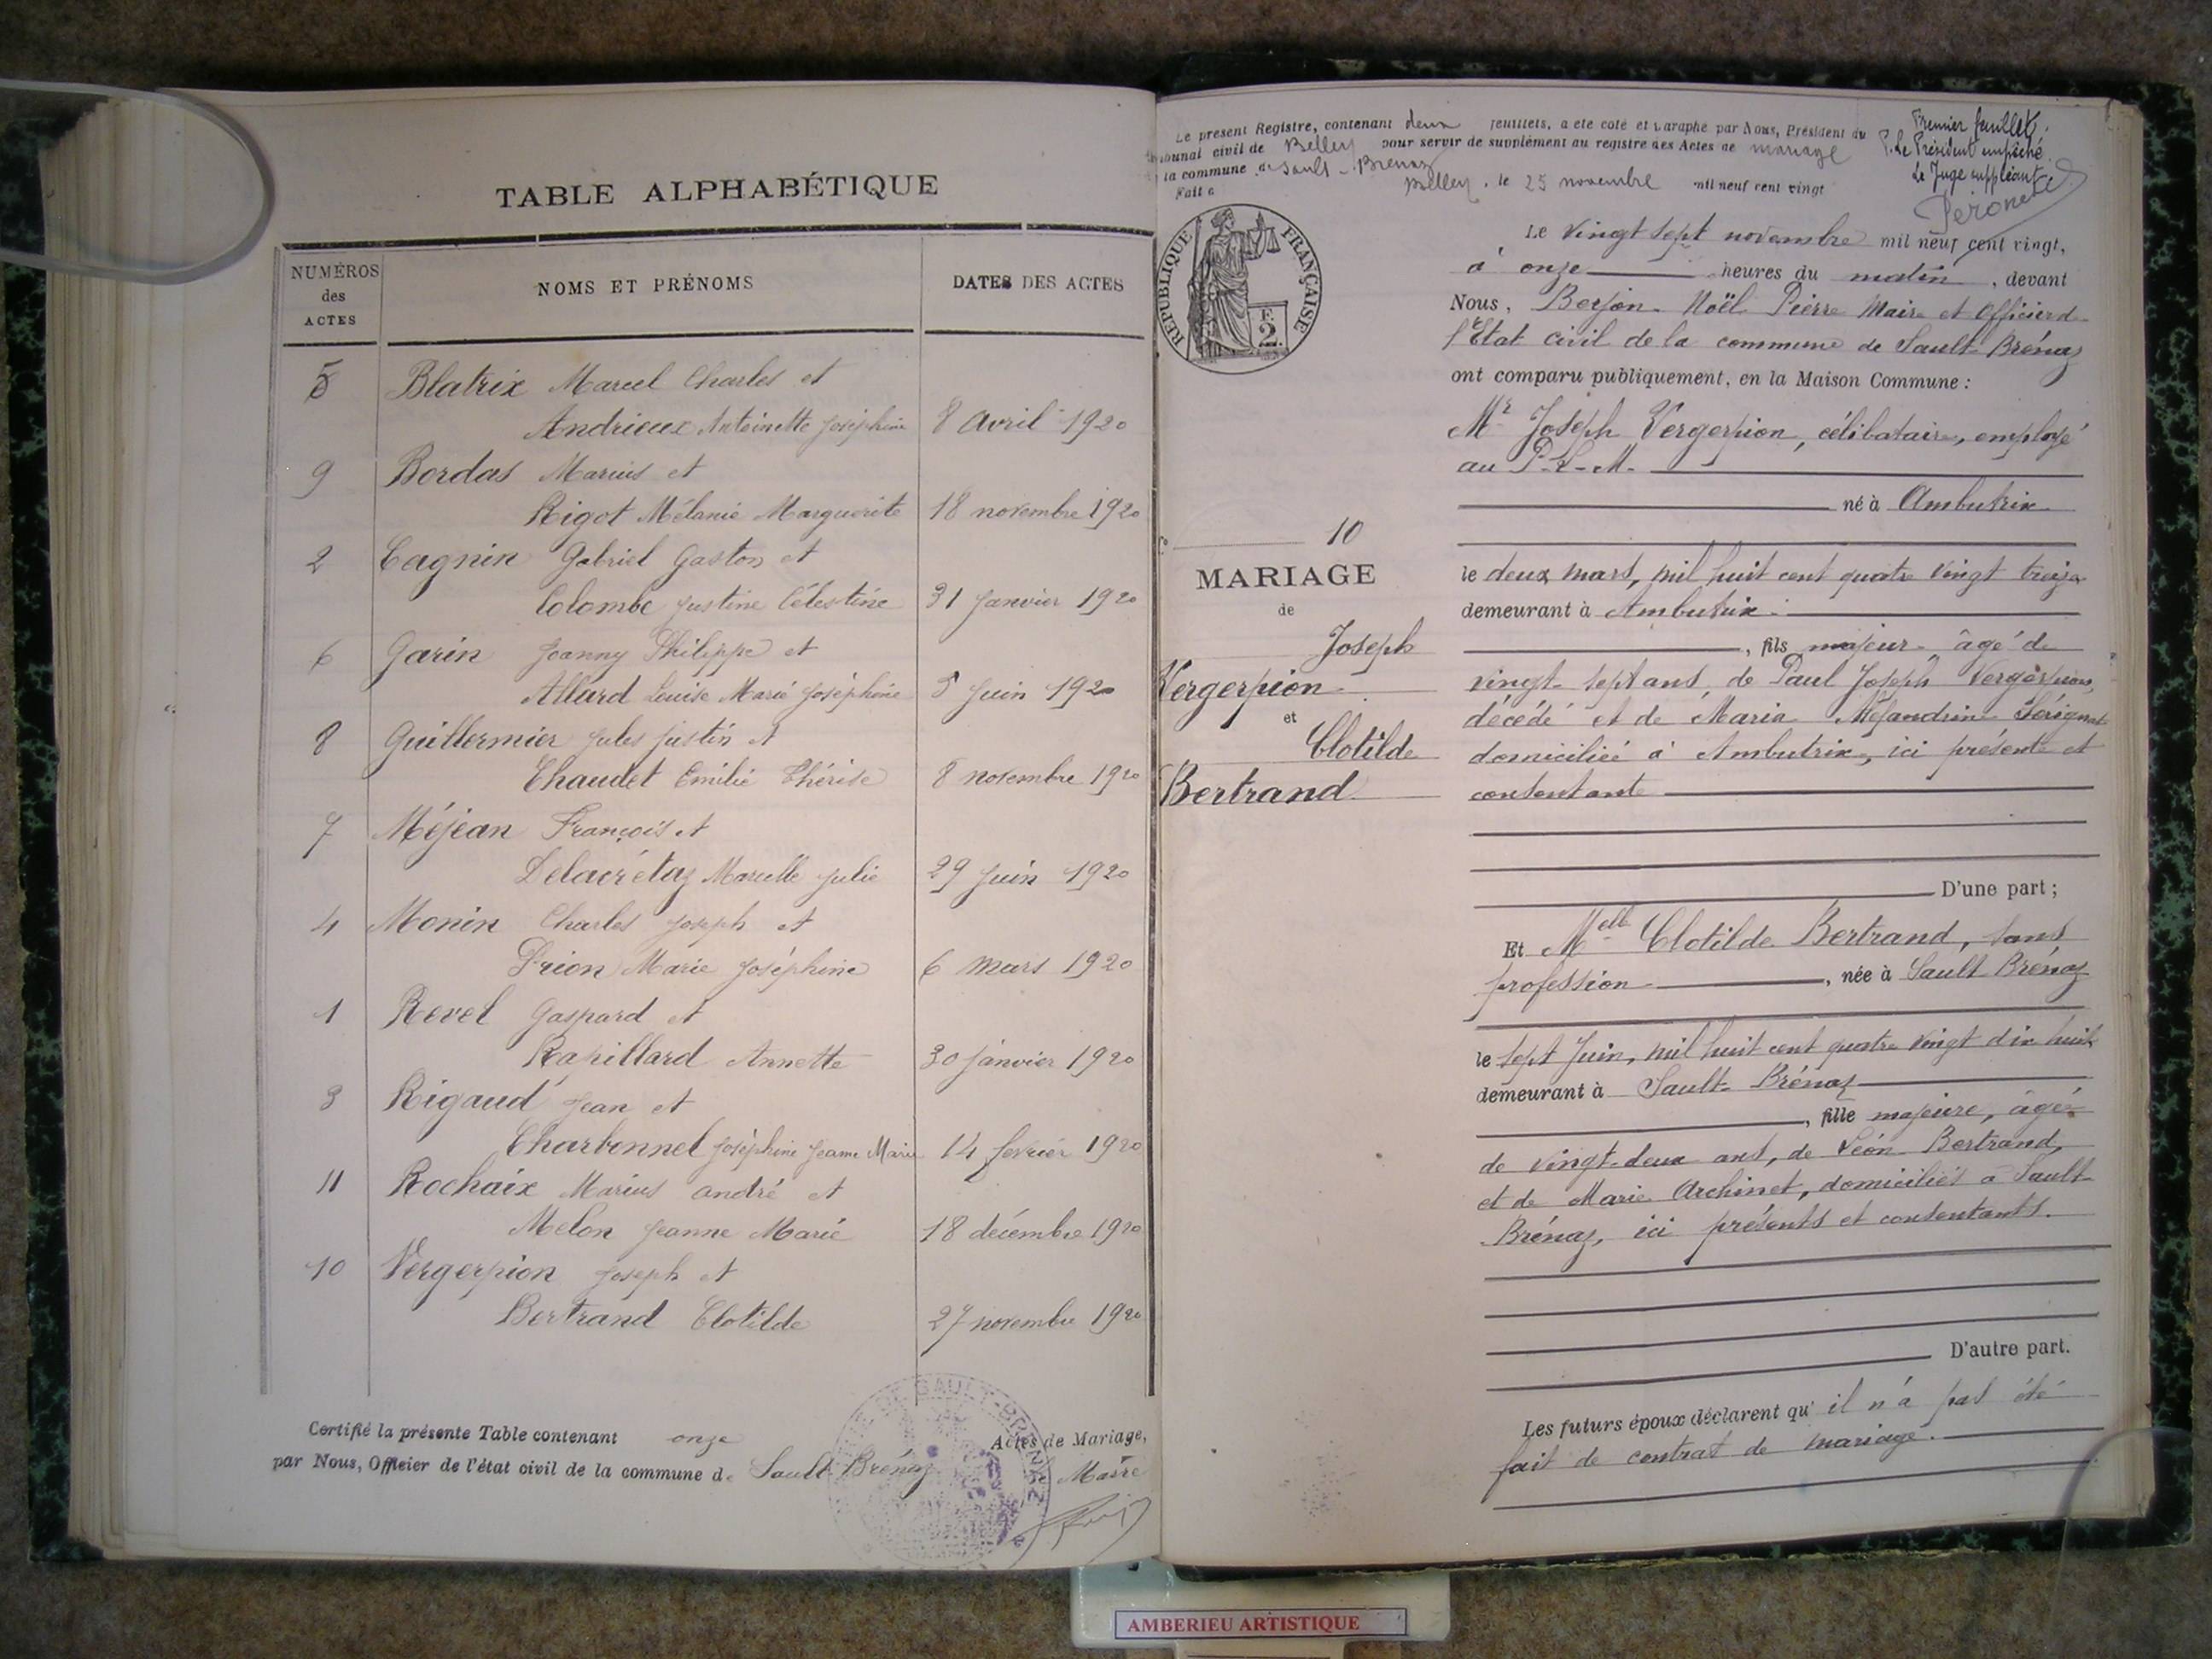 TABLE ALPHABÉTIQUE
NUMÉROS des ACTES
NOMS ET PRÉNOMS
DATES DES ACTES
5 Blatrix Marcel Charles et
Andrieux Antoinette Joséphine 8 Avril 1920
9 Bordas Marius et
Rigot Mélanie Marguerite 18 novembre 1920
2 Cagnin Gabriel Gaston et
Colombe Justine Célestine 31 Janvier 1920
6 Garin Joanny Philippe et
Allard Louise Marie Joséphine 5 Juin 1920
8 Guillermier Jules Justin et
Chaudet Emilie Thérèse 8 novembre 1920
7 Méjean François et
Delacrétaz Marcelle Julie 29 Juin 1920
4 Monin Charles Joseph et
Drion Marie Joséphine 6 Mars 1920
1 Revel Gaspard et
Rapillard Annette 30 janvier 1920
3 Rigaud Jean et
Charbonnel Joséphine Jeanne Marie 14 février 1920
11 Rochaix Marius André et
Melon Jeanne Marie 18 décembre 1920
10 Vergerpion Joseph et
Bertrand Clotilde 27 novembre 1920
Certifié la présente Table contenant onze Actes de Mariage,
par Nous, Officier de l'état civil de la commune de Sault-Brénaz
le Maire
Le présent Registre, contenant deux feuillets, a été coté et paraphé par Nous, Président du
tribunal civil de Belley pour servir de supplément au registre des Actes de mariage
la commune de Sault-Brénaz
Fait à Belley, le 25 novembre mil neuf cent vingt
Premier feuillet.
P. Le Président empêché
Le Juge suppléant
RÉPUBLIQUE FRANÇAISE
F. 2.
10
MARIAGE
de
Joseph
Vergerpion
et
Clotilde
Bertrand
Le vingt sept novembre mil neuf cent vingt,
à onze heures du matin, devant
Nous, Berjon Noël Pierre Maire et Officier de
l'Etat civil de la commune de Sault-Brénaz
ont comparu publiquement, en la Maison Commune :
Mr Joseph Vergerpion, célibataire, employé
au P-L-M-
né à Ambutrix
le deux mars, mil huit cent quatre vingt treize
demeurant à Ambutrix
, fils majeur âgé de
vingt-sept ans, de Paul Joseph Vergerpion,
décédé et de Maria Alexandrine
domiciliée à Ambutrix, ici présente et
consentante
D'une part ;
Et Melle Clotilde Bertrand, sans
profession, née à Sault Brénaz
le sept Juin, mil huit cent quatre vingt dix huit
demeurant à Sault-Brénaz
, fille majeure, âgée
de vingt-deux ans, de Léon Bertrand,
et de Marie Archinet, domiciliés à Sault-
Brénaz, ici présents et consentants.
D'autre part.
Les futurs époux déclarent qu'il n'a pas été
fait de contrat de mariage.
AMBERIEU ARTISTIQUE